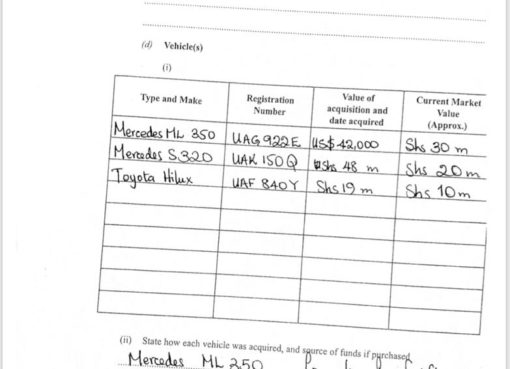 (d) Vehicle(s)
(i)
Type and Make
Registration Number
Value of acquisition and date acquired
Current Market Value (Approx.)
Mercedes ML 350 UAG 922E US$ 42,000 Shs 30 m
Mercedes S.320 UAK 150Q Shs 48 m Shs 20 m
Toyota Hilux UAF 840Y Shs 19 m Shs 10 m
(ii) State how each vehicle was acquired, and source of funds if purchased
Mercedes ML 350